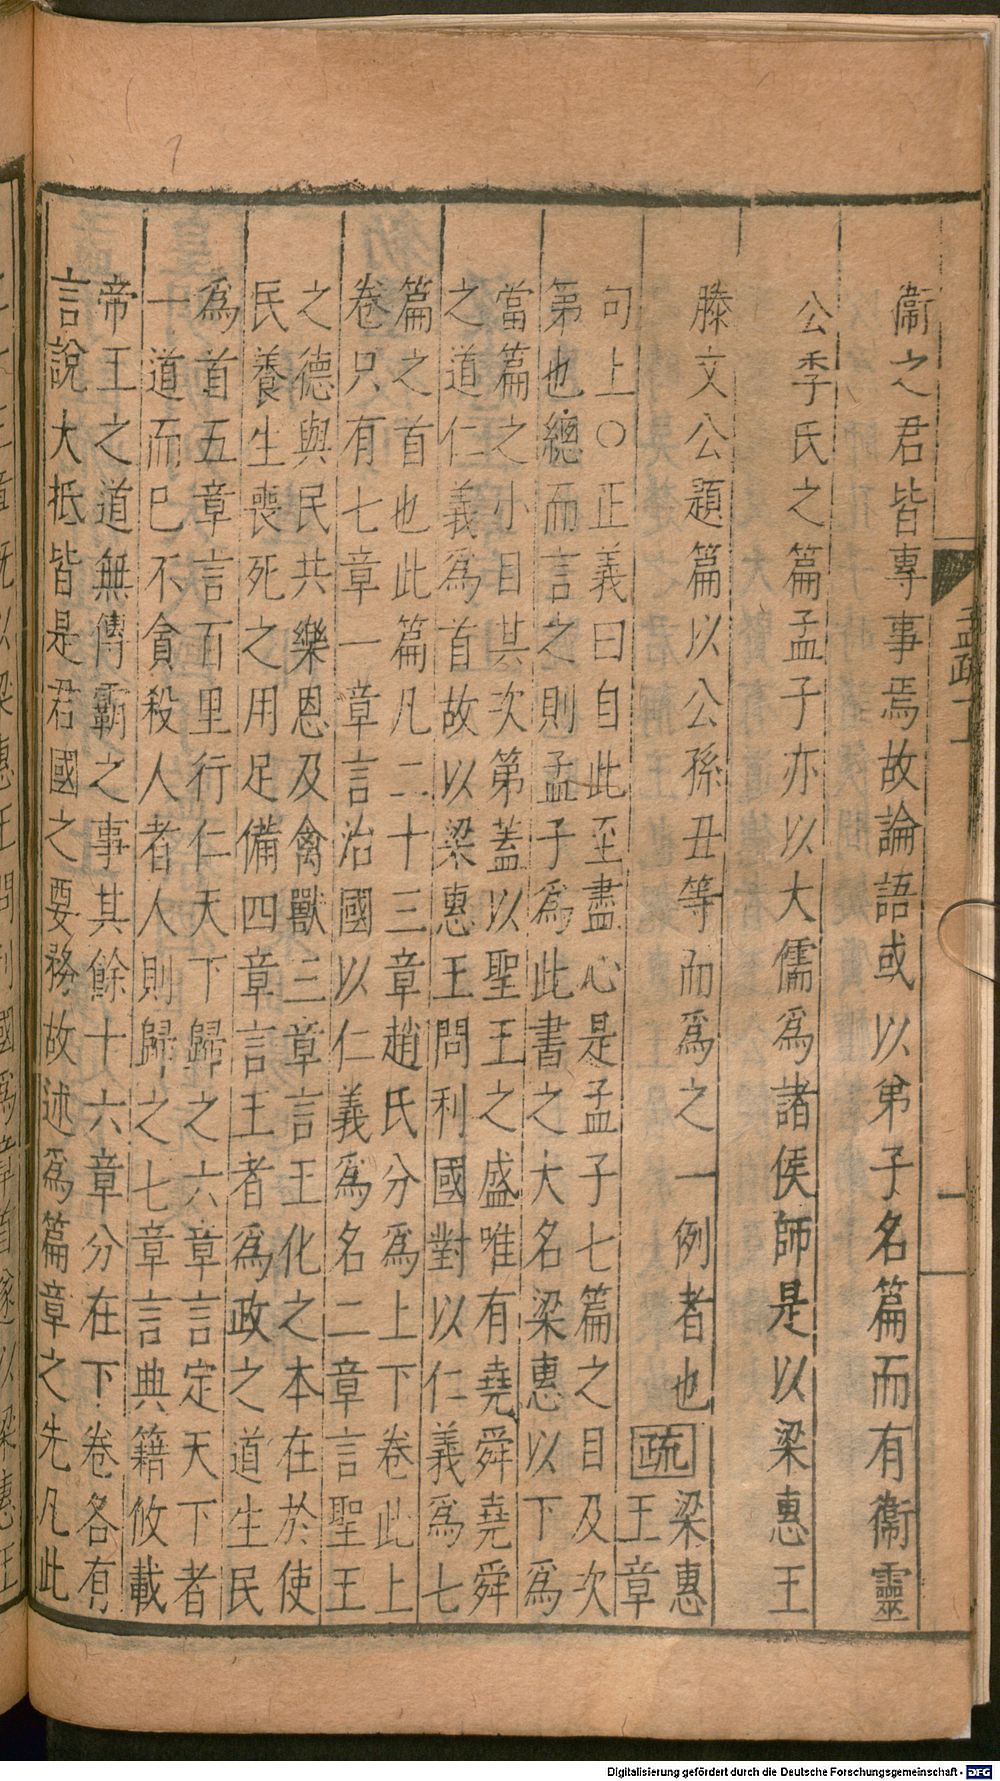 孟疏
衞之君皆專事焉故論語或以弟子名篇而有衞靈
公季氏之篇孟子亦以大儒爲諸侯師是以梁惠王
滕文公題篇以公孫丑等而爲之一例者也 疏 梁惠
王章
句上○正義曰自此至盡心是孟子七篇之目及次
第也總而言之則孟子爲此書之大名梁惠以下爲
當篇之小目其次第蓋以聖王之盛唯有堯舜堯舜
之道仁義爲首故以梁惠王問利國對以仁義爲七
篇之首也此篇凡二十三章趙氏分爲上下卷此上
卷只有七章一章言治國以仁義爲名二章言聖王
之德與民共樂恩及禽獸三章言王化之本在於使
民養生喪死之用足備四章言王者爲政之道生民
爲首五章言百里行仁天下歸之六章言定天下者
一道而已不貪殺人者人則歸之七章言典籍攸載
帝王之道無傳霸之事其餘十六章分在下卷各有
言說大抵皆是君國之要務故述爲篇章之先凡此
Digitalisierung gefördert durch die Deutsche Forschungsgemeinschaft - DFG